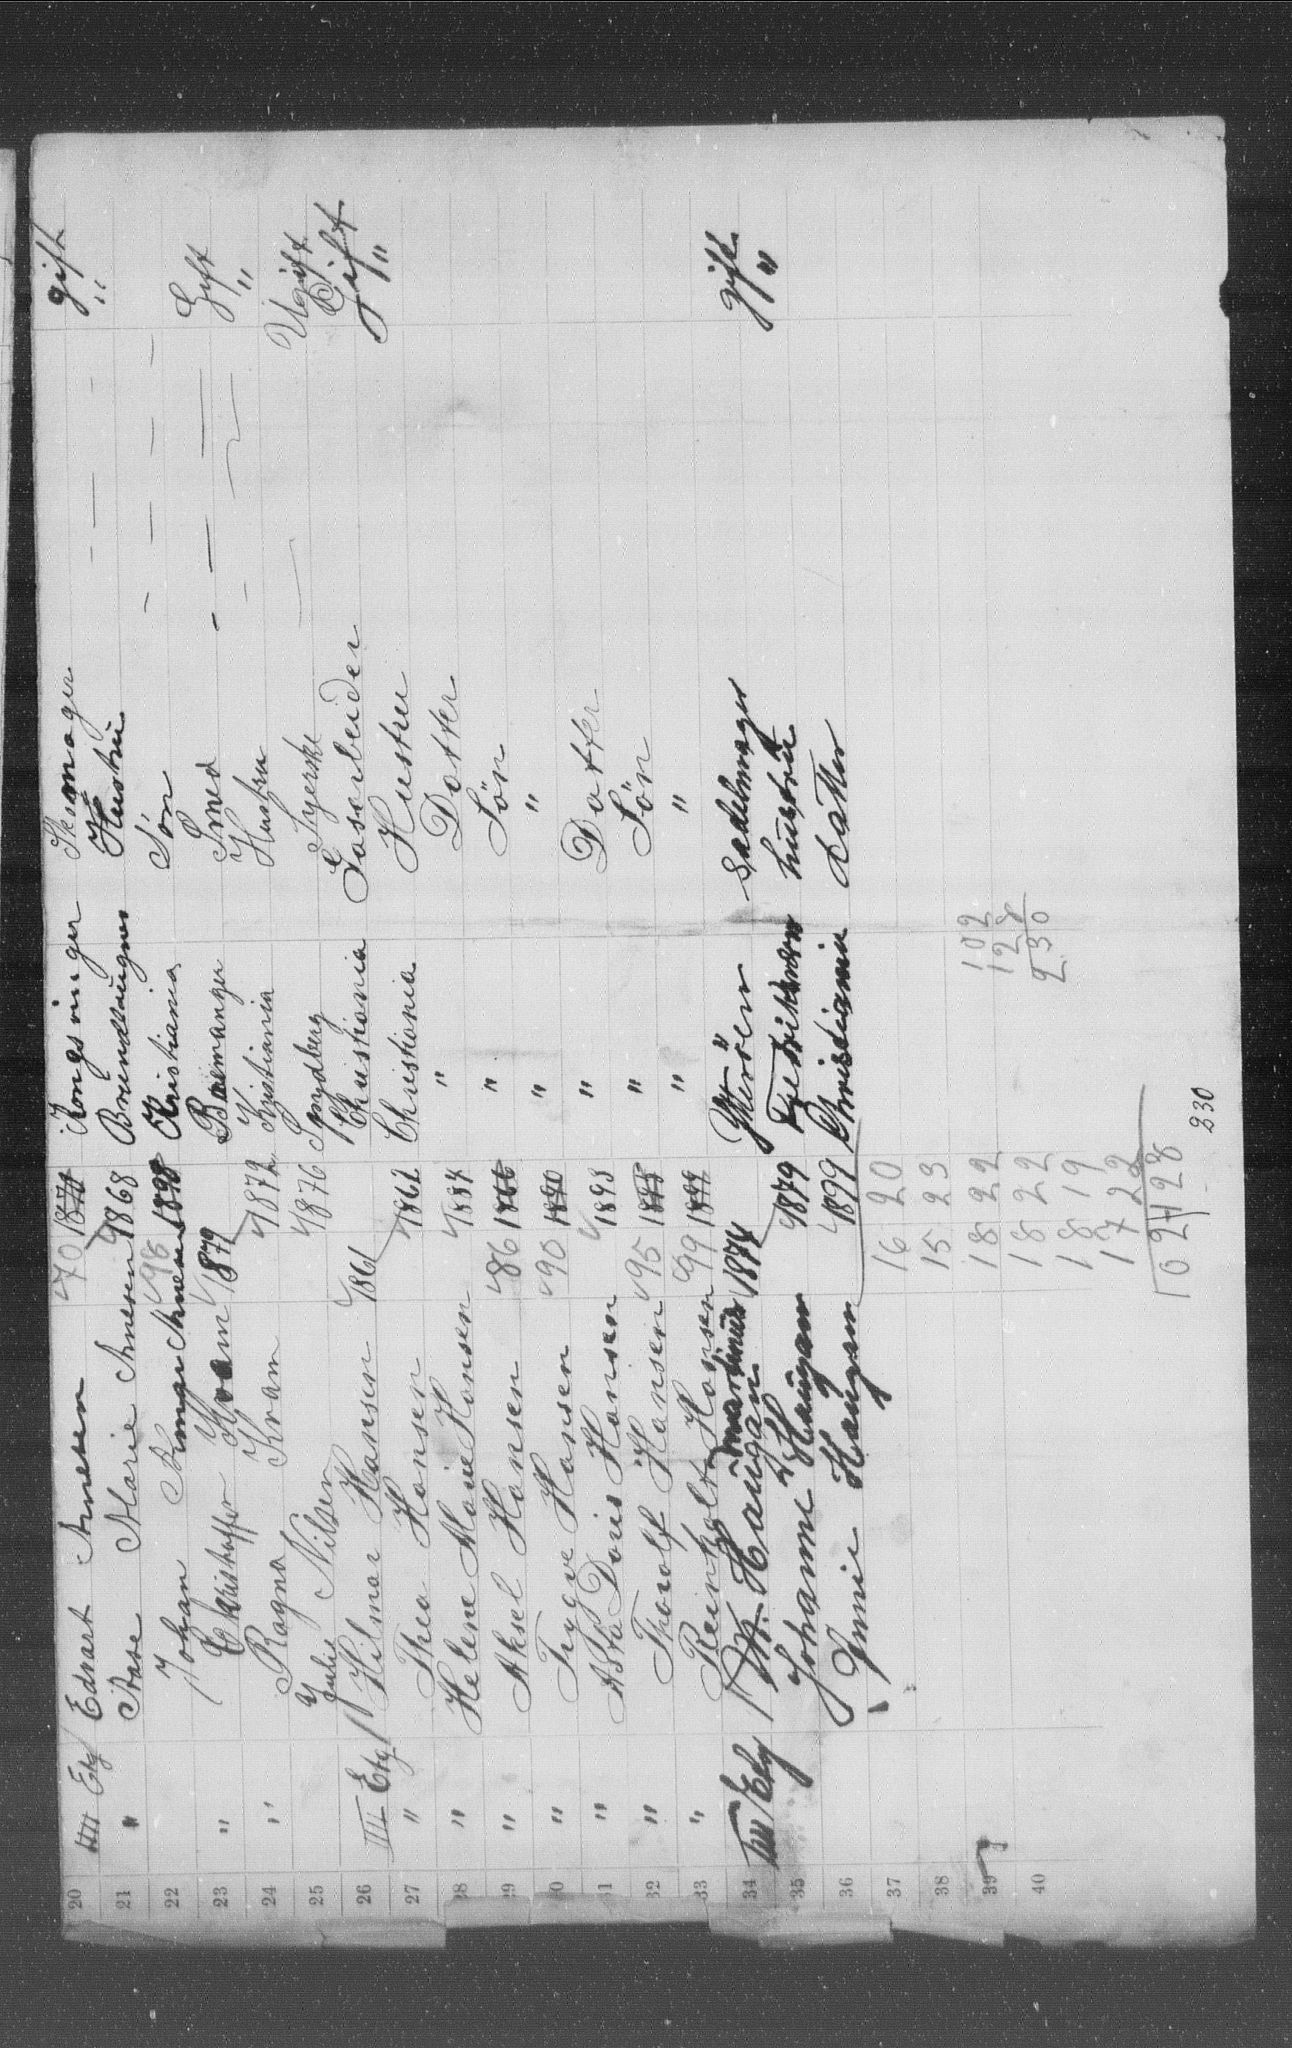 20 IIII Etg Edvart Arnesen 70 1870 Kongsvinger Skomager gift
21 " Aase Marie Arnesen 1868 Hustru "
22 Johan Arnesen 98 1898 Kristiania Søn
23 " Christoffer Kvam 1879 Smed Gift
24 " Ragna Kvam 1872 Kristiania Hustru "
25 Julie Nilsen 1876 Syerske Ugift
26 IIII Etg Hilmar Hansen 1861 Christiania Løsarbeider Gift
27 " Thea Hansen 1862 Christiania Hustru "
28 " Helene Marie Hansen 1884 " Datter
29 " Aksel Hansen 86 1886 " Søn
30 " Trygve Hansen 90 1890 " "
31 " Asta Doris Hansen 1893 " Datter
32 " Thorolf Hansen 95 1895 " Søn
33 " Reinholt Hansen 99 1899 " "
34 IIII Etg M. Haugan Martinus 1874 Sadelmager gift
35 Johanne Haugan 1879 Hustru "
36 Haugan 1899 Christiania datter
37 16 20
38 15 23
39 18 22
40 18 22
18 19
17 22
102 128
102
128
230
230